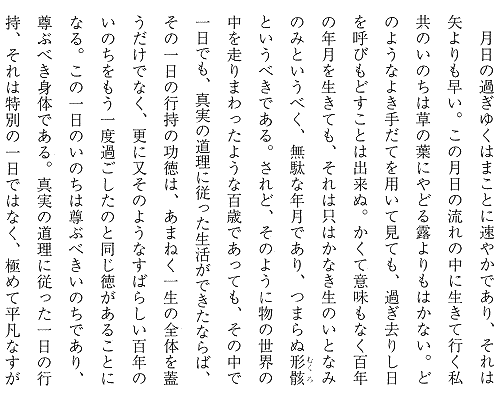 月日の過ぎゆくはまことに速やかであり、それは
矢よりも早い。この月日の流れの中に生きて行く私
共のいのちは草の葉にやどる露よりもはかない。ど
のようなよき手だてを用いて見ても、過ぎ去りし日
を呼びもどすことは出来ぬ。かくて意味もなく百年
の年月を生きても、それは只はかなき生のいとなみ
のみというべく、無駄な年月であり、つまらぬ形骸むくろ
というべきである。されど、そのように物の世界の
中を走りまわったような百歳であっても、その中で
一日でも、真実の道理に従った生活ができたならば、
その一日の行持の功徳は、あまねく一生の全体を蓋
うだけでなく、更に又そのようなすばらしい百年の
いのちをもう一度過ごしたのと同じ徳があることに
なる。この一日のいのちは尊ぶべきいのちであり、
尊ぶべき身体である。真実の道理に従った一日の行
持、それは特別の一日ではなく、極めて平凡なすが